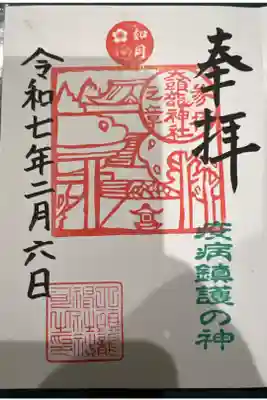 奉拝
疫病鎮護の神
如月
大頭龍神社
之章
令和七年二月六日